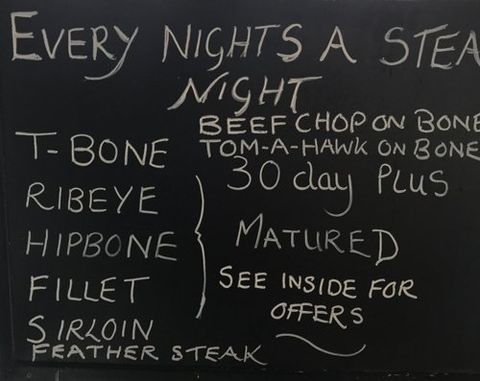 EVERY NIGHTS A STEA
NIGHT
BEEF CHOP ON BONE
TOM-A-HAWK ON BONE
T-BONE
30 day PLUS
RIBEYE
HIPBONE
MATURED
FILLET
SEE INSIDE FOR
OFFERS
SIRLOIN
FEATHER STEAK